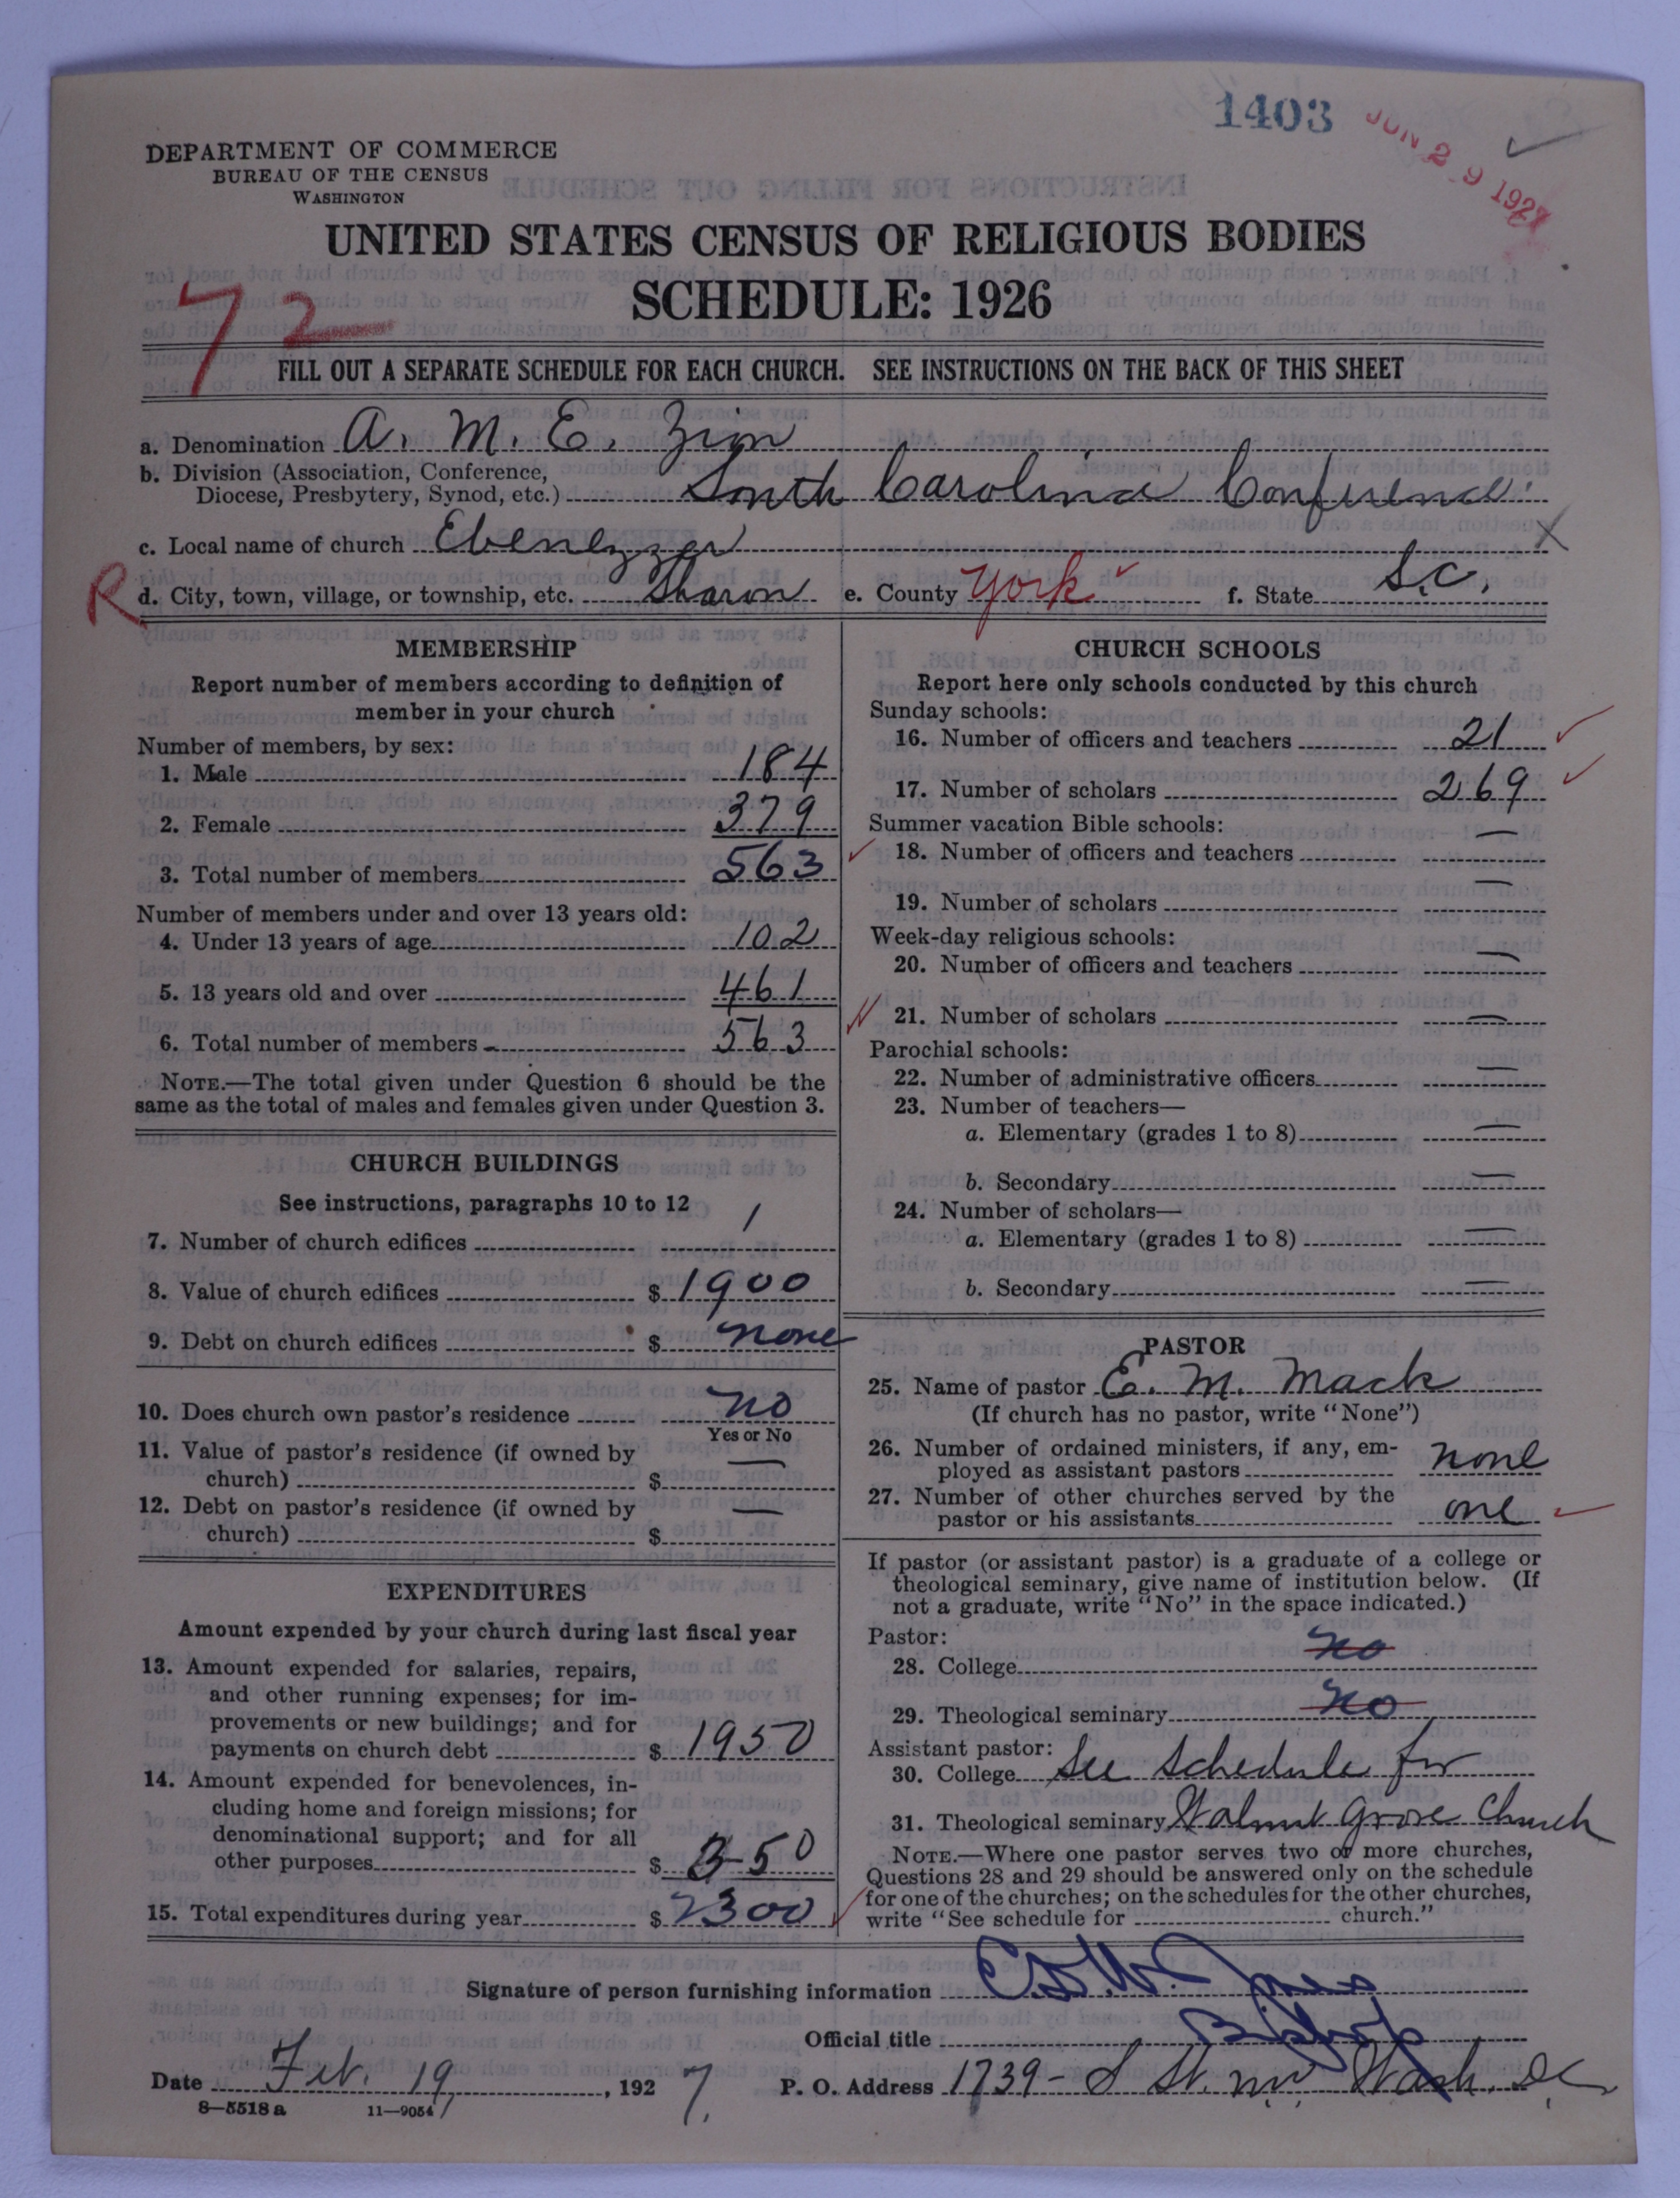 1403
JUN 29 1927
DEPARTMENT OF COMMERCE
BUREAU OF THE CENSUS
WASHINGTON
UNITED STATES CENSUS OF RELIGIOUS BODIES
SCHEDULE: 1926
72
FILL OUT A SEPARATE SCHEDULE FOR EACH CHURCH. SEE INSTRUCTIONS ON THE BACK OF THIS SHEET
a. Denomination A. M. E. Zion
b. Division (Association, Conference,
Diocese, Presbytery, Synod, etc.) South Carolina Conference.
c. Local name of church Ebenezzer
R d. City, town, village, or township, etc. Sharon e. County York f. State S.C.
MEMBERSHIP
Report number of members according to definition of
member in your church
Number of members, by sex:
1. Male 184
2. Female 379
3. Total number of members 563
Number of members under and over 13 years old:
4. Under 13 years of age 102
5. 13 years old and over 461
6. Total number of members 563
NOTE.—The total given under Question 6 should be the
same as the total of males and females given under Question 3.
CHURCH BUILDINGS
See instructions, paragraphs 10 to 12
7. Number of church edifices 1
8. Value of church edifices $ 1900
9. Debt on church edifices $ none
10. Does church own pastor's residence no
Yes or No
11. Value of pastor's residence (if owned by
church) $ —
12. Debt on pastor's residence (if owned by
church) $ —
EXPENDITURES
Amount expended by your church during last fiscal year
13. Amount expended for salaries, repairs,
and other running expenses; for im-
provements or new buildings; and for
payments on church debt $ 1950
14. Amount expended for benevolences, in-
cluding home and foreign missions; for
denominational support; and for all
other purposes $ 350
15. Total expenditures during year $ 2300
CHURCH SCHOOLS
Report here only schools conducted by this church
Sunday schools:
16. Number of officers and teachers 21
17. Number of scholars 269
Summer vacation Bible schools:
18. Number of officers and teachers —
19. Number of scholars —
Week-day religious schools:
20. Number of officers and teachers —
21. Number of scholars —
Parochial schools:
22. Number of administrative officers —
23. Number of teachers—
a. Elementary (grades 1 to 8) —
b. Secondary —
24. Number of scholars—
a. Elementary (grades 1 to 8) —
b. Secondary —
PASTOR
25. Name of pastor E. M. Mack
(If church has no pastor, write "None")
26. Number of ordained ministers, if any, em-
ployed as assistant pastors none
27. Number of other churches served by the
pastor or his assistants one
If pastor (or assistant pastor) is a graduate of a college or
theological seminary, give name of institution below. (If
not a graduate, write "No" in the space indicated.)
Pastor:
28. College no
29. Theological seminary no
Assistant pastor:
30. College See Schedule for
31. Theological seminary Walnut Grove Church
NOTE.—Where one pastor serves two or more churches,
Questions 28 and 29 should be answered only on the schedule
for one of the churches; on the schedules for the other churches,
write "See schedule for church."
Signature of person furnishing information Jones
Official title Bishop
Date Feb. 19, 1927. P. O. Address 1739 - S St. nw Wash. DC
8—5518a 11—9054